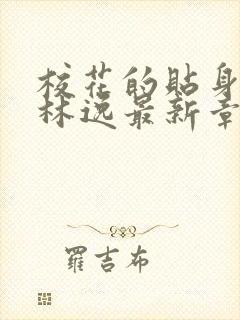 校花的貼身
林逸最新章
羅吉布